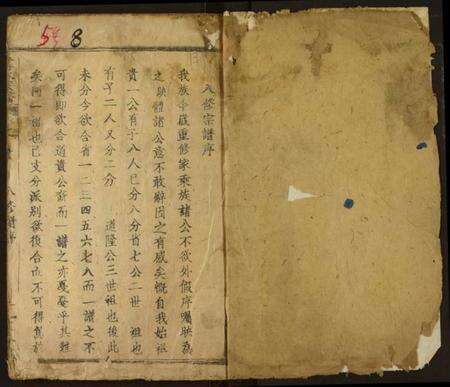 58
8
八修宗譜序
我族今歲重修家乘族諸公不欲外假序囑映為
之映體諸公意不敢辭因之有感矣慨自我始祖
貴一公有子八人已分八分首七公二世祖也
有子二人又分二分道隆公三世祖也後此
未分今欲合首一二三四五六七八而一譜之不
可得即欲合道貴公派而一譜之亦戛戛乎其難
矣何一譜也已支分派別欲復合也不可得甚於
八修譜序